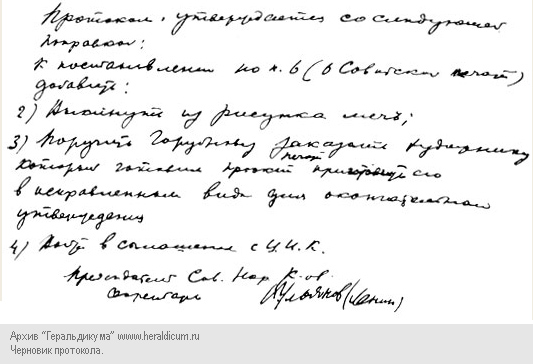 Протокол утверждается со следующей
поправкой:
К постановлению по п. 6 (о Советской печати)
добавить:
2) Выкинуть из рисунка меч;
3) Поручить Горбунову заказать художнику
который готовил проект печати его
в исправленном виде для окончательного
утверждения
4) Войти в соглашение с Ц.И.К.
Председатель Сов. Нар. К-ов.
Секретарь В Ульянов (Ленин)
Архив "Геральдикума" www.heraldicum.ru
Черновик протокола.